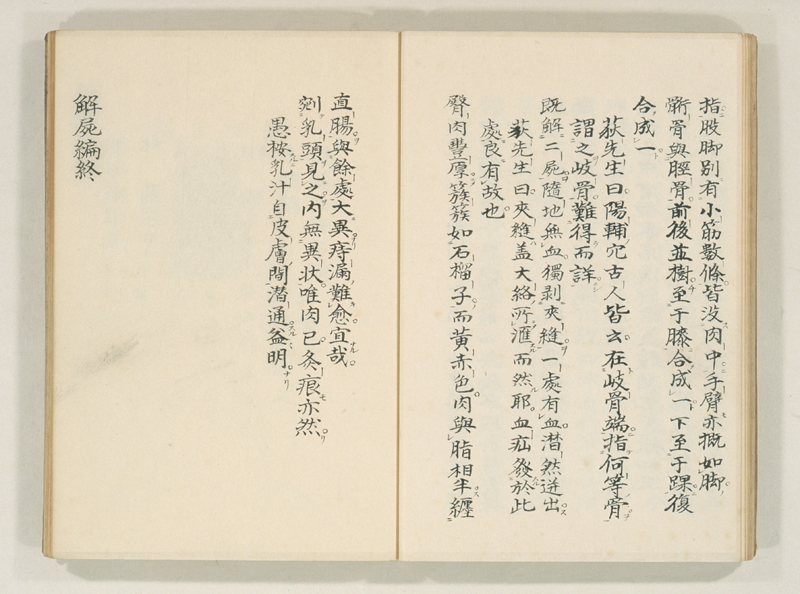 指股脚別有小筋数條皆没肉中手臂亦概如脚
骱骨與脛骨前後並樹至于膝合成一下至于踝復
合成一
荻先生曰陽輔穴古人皆云在岐骨端指何等骨
謂之岐骨難得而詳
既解二屍隨地無血獨剥夾縫一處有血潜然迸出
荻先生曰夾縫盖大絡所滙而然耶血疝發於此
處良有故也
臀肉豊厚簇簇如石榴子而黄赤色肉與脂相半纒
直腸與餘處大異痔漏難愈宜哉
剜乳頭見之内無異状唯肉已灸痕亦然
愚桉乳汁自皮膚間潜通益明
解屍編終